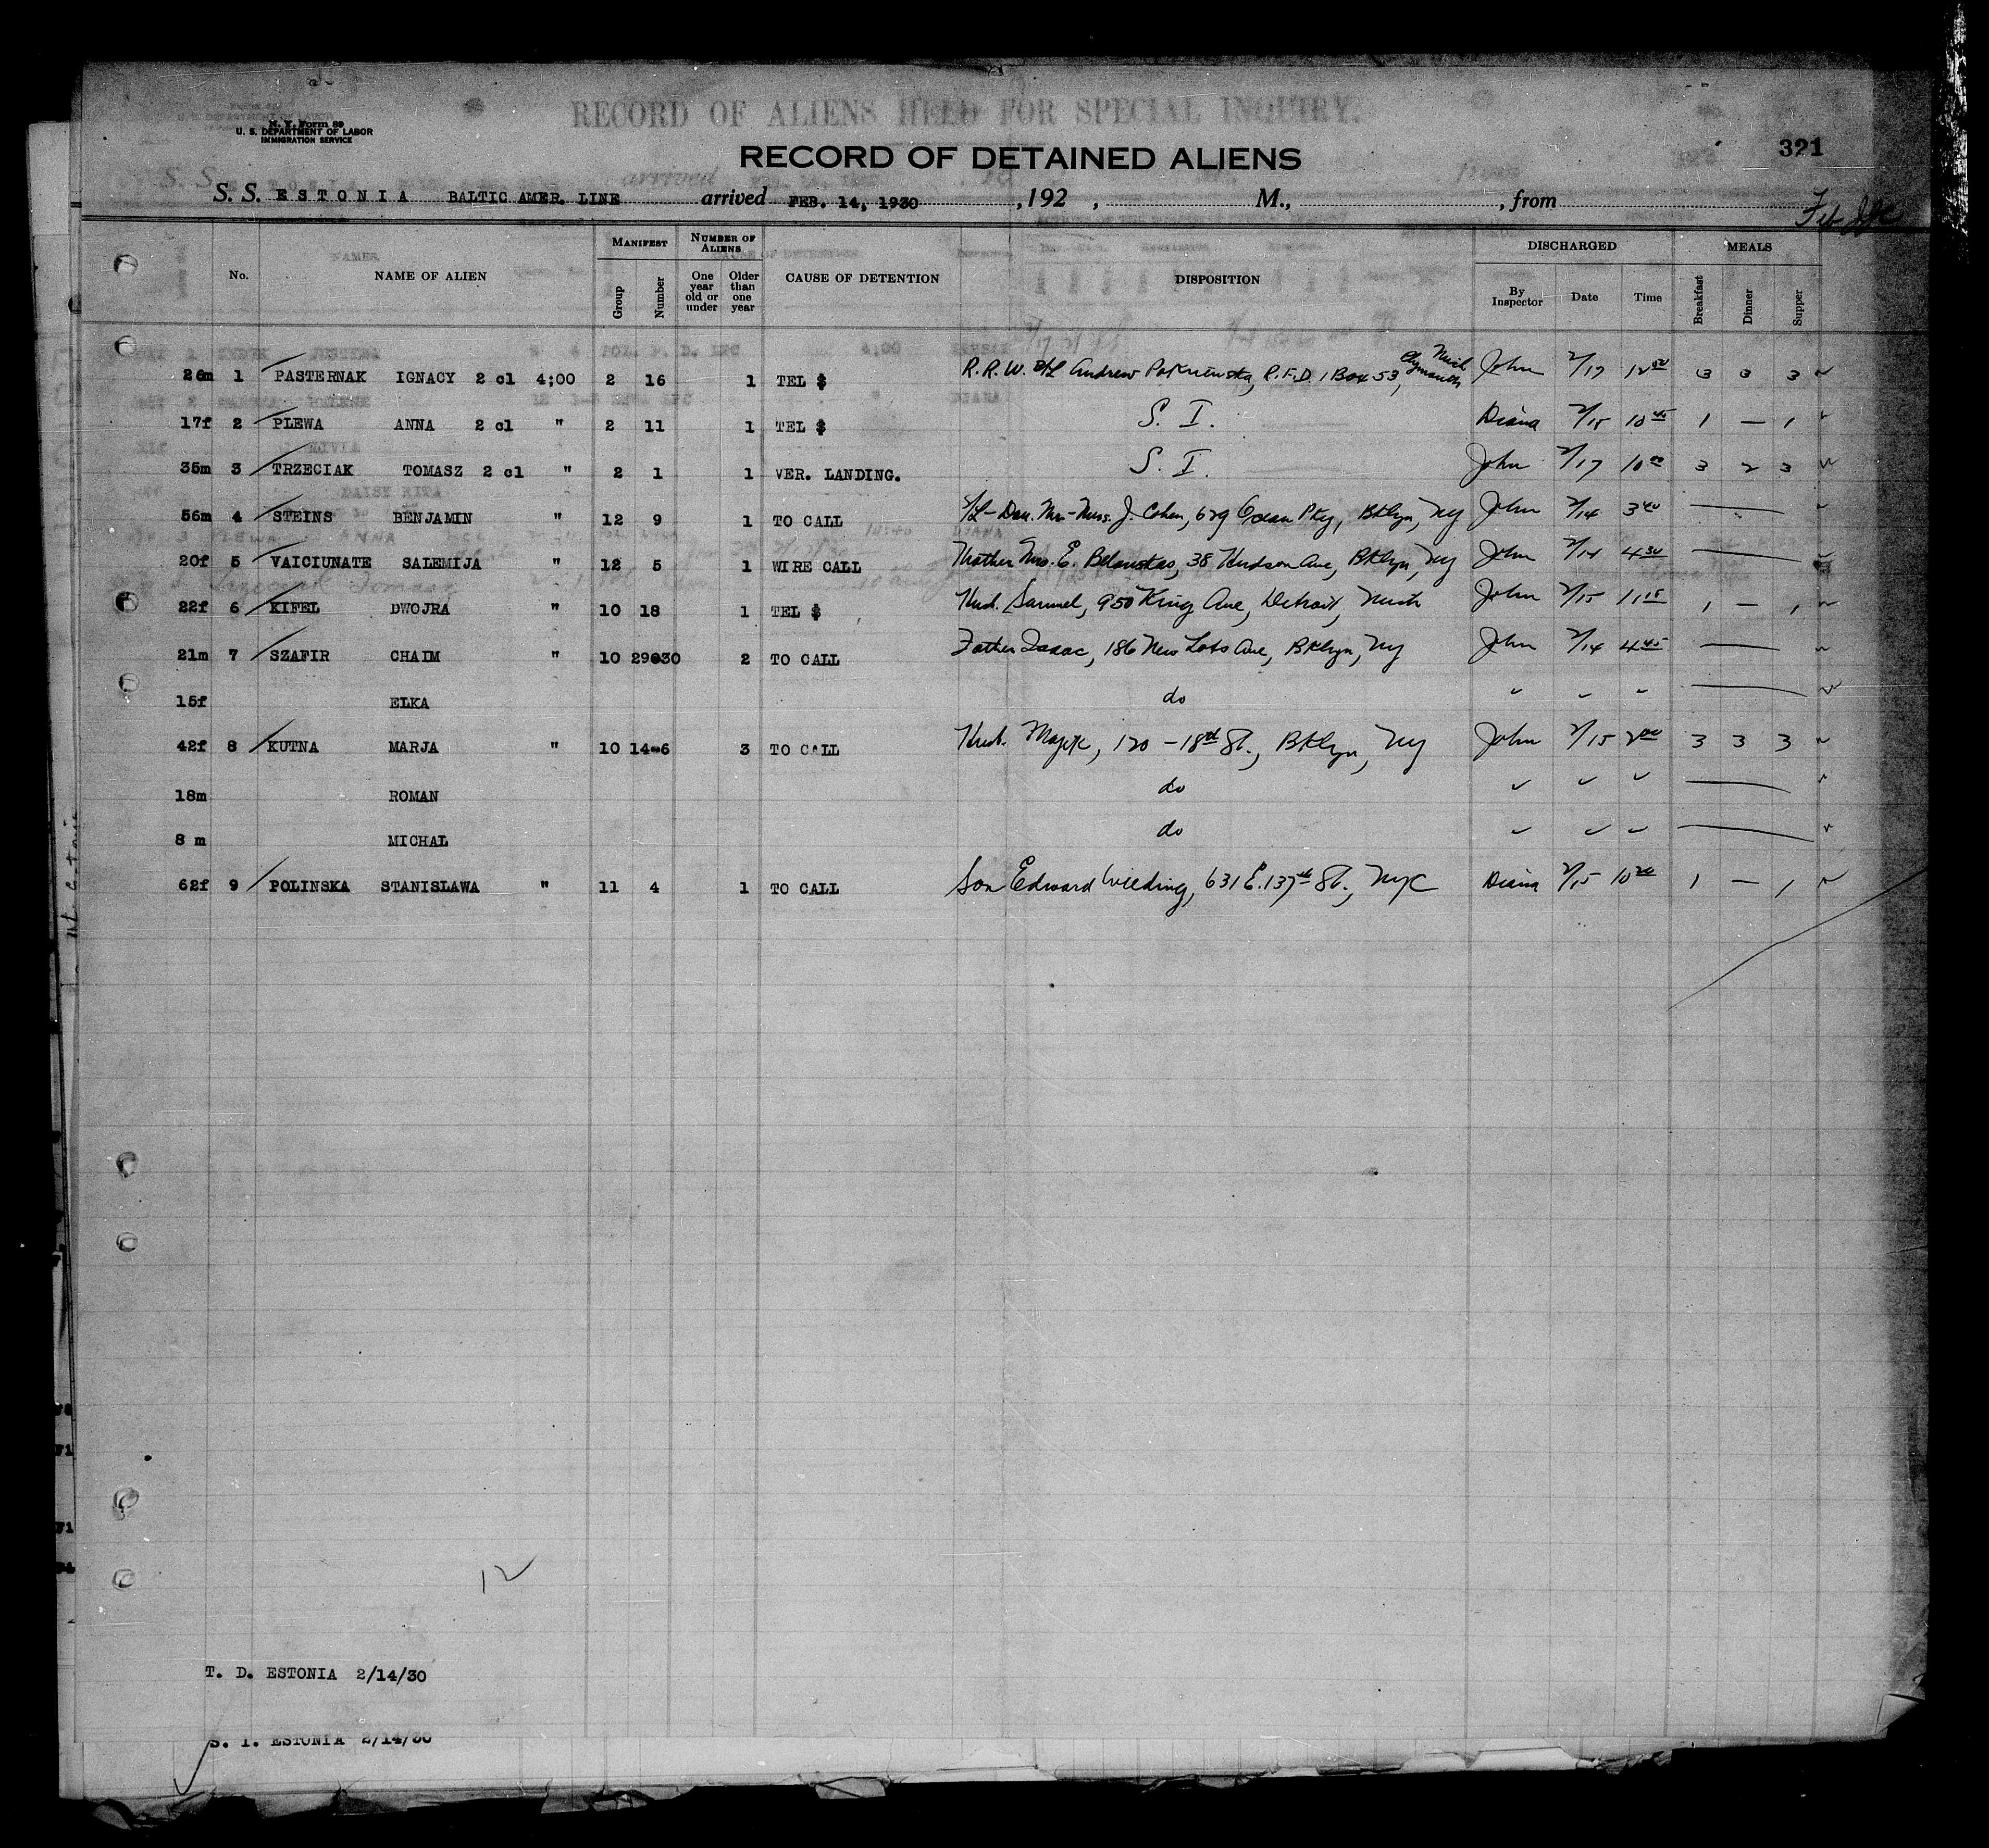 RECORD OF ALIENS HELD FOR SPECIAL INQUIRY.
N. Y. Form 89
U. S. DEPARTMENT OF LABOR
IMMIGRATION SERVICE
RECORD OF DETAINED ALIENS
321
S. S. ESTONIA BALTIC AMER. LINE arrived FEB. 14, 1930, 192 , M., , from
No. NAME OF ALIEN MANIFEST Group Number NUMBER OF ALIENS One year old or under Older than one year CAUSE OF DETENTION DISPOSITION DISCHARGED By Inspector Date Time MEALS Breakfast Dinner Supper
26m 1 PASTERNAK IGNACY 2 cl 4;00 2 16 1 TEL $ R.R.W. Andrew R.F.D. 1 Box 53, Plymouth Mich John 2/17 12 3 3 3
17f 2 PLEWA ANNA 2 cl " 2 11 1 TEL $ S. I. Diana 2/15 10 45 1 — 1
35m 3 TRZECIAK TOMASZ 2 cl " 2 1 1 VER. LANDING. S. I. John 2/17 10 00 3 2 3
56m 4 STEINS BENJAMIN " 12 9 1 TO CALL J. Cohen, 629 Ocean Pky, Bklyn, NY John 2/14 3 40 —
20f 5 VAICIUNATE SALEMIJA " 12 5 1 WIRE CALL Mother Mrs. E. 38 Hudson Ave, Bklyn, NY John 2/14 4 30 —
22f 6 KIFEL DWOJRA " 10 18 1 TEL $ Husb. Samuel, 950 King Ave, Detroit, Mich John 2/15 11 15 1 — 1
21m 7 SZAFIR CHAIM " 10 29&30 2 TO CALL Father Isaac, 186 New Lots Ave, Bklyn, NY John 2/14 4 45 —
15f ELKA do
42f 8 KUTNA MARJA " 10 14-6 3 TO CALL Husb. 120 - 18th St., Bklyn, NY John 2/15 2 00 3 3 3
18m ROMAN do
8 m MICHAL do
62f 9 POLINSKA STANISLAWA " 11 4 1 TO CALL Son Edward Wieding, 631 E. 137th St., NYC Diana 2/15 10 20 1 — 1
12
T. D. ESTONIA 2/14/30
S. I. ESTONIA 2/14/30